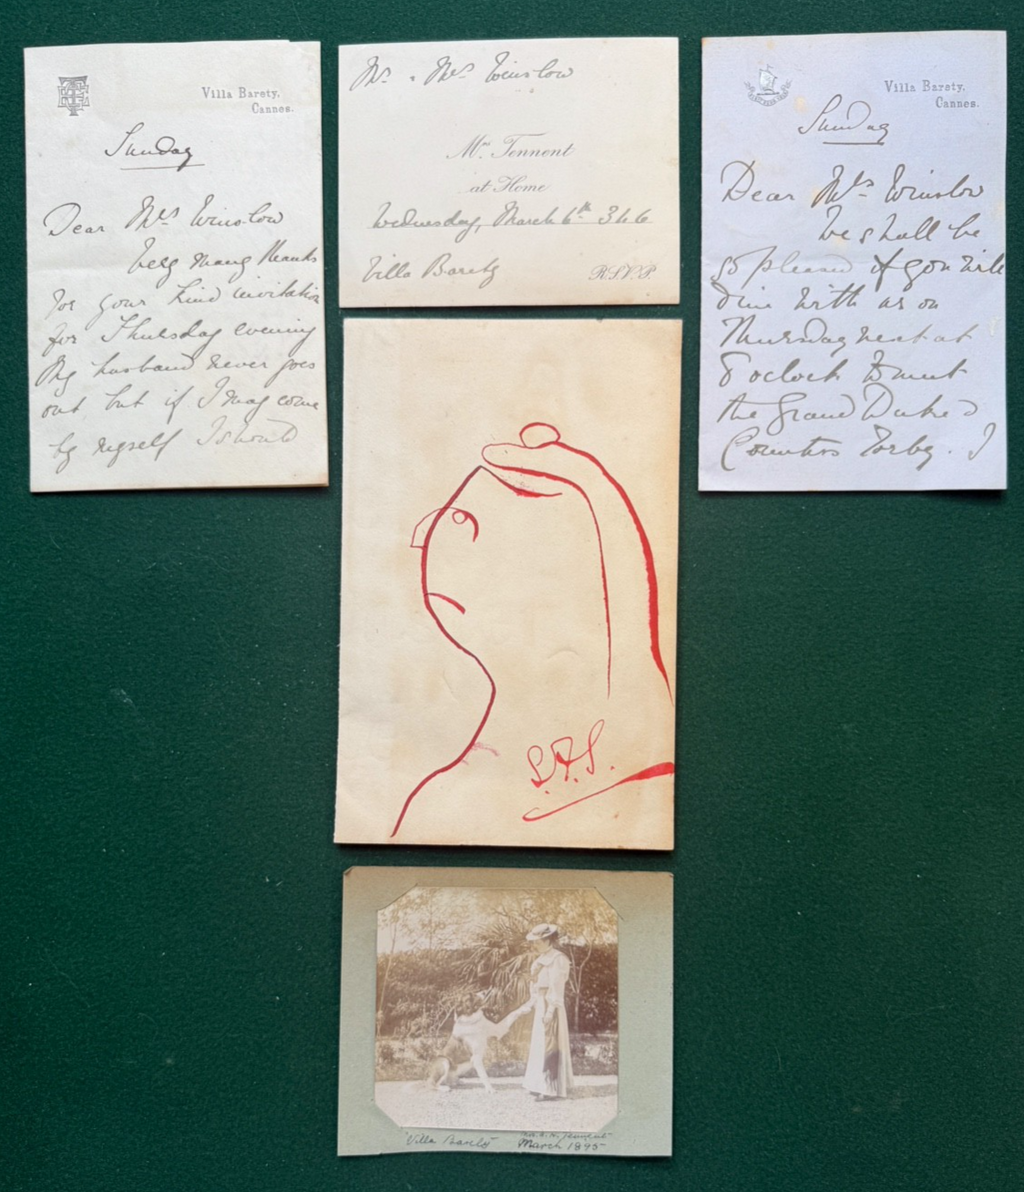 Villa Barety,
Cannes.
Sunday
Dear Mrs Winslow
Very many thanks
for your kind invitation
for Thursday evening
My husband never goes
out but if I may come
by myself I should
Mr. & Mrs Winslow
Mrs. Tennent
at Home
Wednesday, March 6th 3 to 6
Villa Barety
R.S.V.P.
Villa Barety,
Cannes.
Sunday
Dear Mrs Winslow
We shall be
so pleased if you will
dine with us on
Thursday next at
8 oclock to meet
the Grand Duke &
Countess Torby. I
S.F.S.
"Villa Barety"
Mrs. H. N. Tennent
March 1895